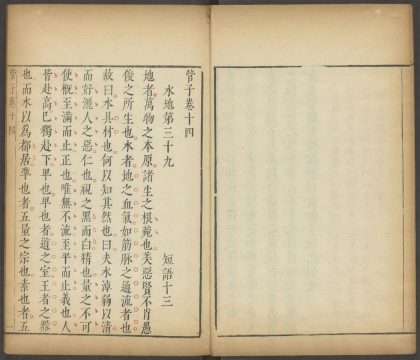 管子卷十四
水地第三十九　短語十三
地者萬物之本原諸生之根菀也美惡賢不肖愚
俊之所生也水者地之血氣如筋脈之通流者也
故曰水具材也何以知其然也曰夫水淖弱以清
而好灑人之惡仁也視之黑而白精也量之不可
使概至滿而止正也唯無不流至平而止義也人
皆赴高己獨赴下卑也卑也者道之室王者之器
也而水以爲都居準也者五量之宗也素也者五
管子卷十四